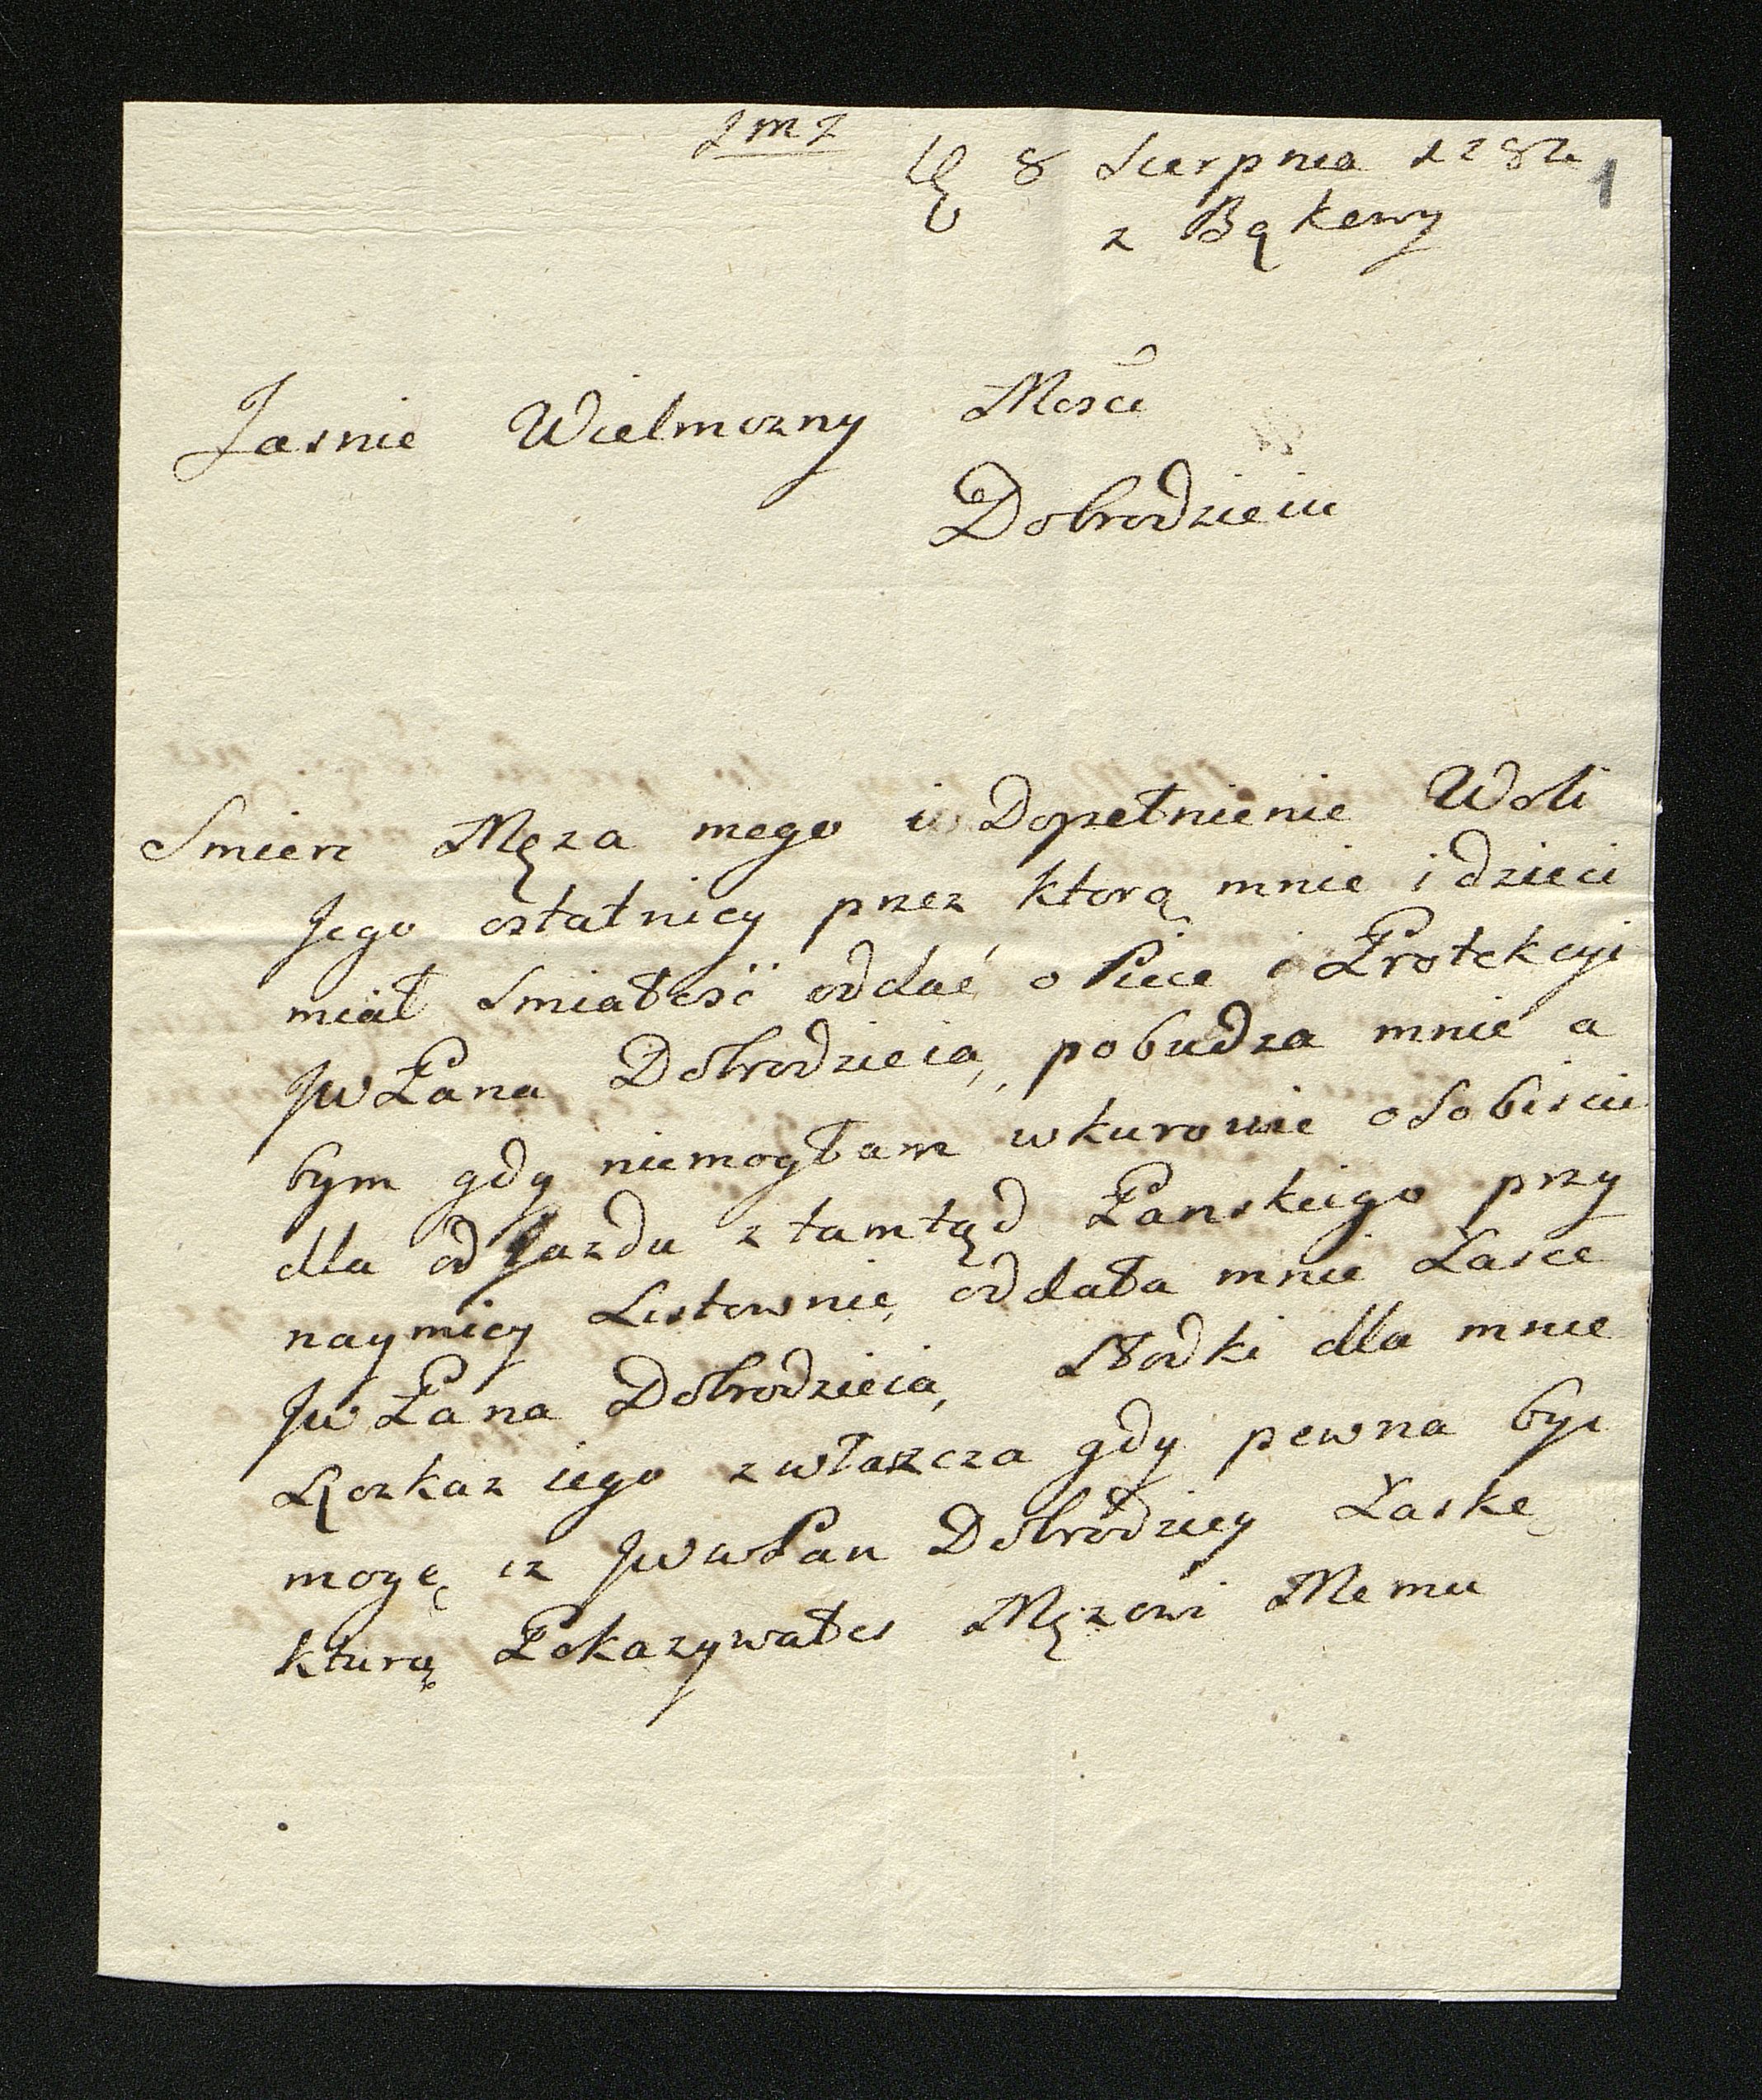 JMJ
8 Sierpnia 1782
1
z Bąkowy
Jasnie Wielmozny Mosci
Dobrodzieiu
Smierc Męza mego i Dopełnienie Woli
Jego ostatniey przez ktorą mnie i dzieci
miał Smiałosć oddać oPiece i Protekcyi
JWPana Dobrodzieia, pobudza mnie a
bym gdy niemogłam wkurowie osobiscie
dla odJazdu ztamtąd Panskiego przy
naymiey Listownie, oddała mnie Łasce
JWPana Dobrodzieia, Słodki dla mnie
Rozkaz iego zwłaszcza gdy pewna byc
mogę iz JWwPan Dobrodziey Łaskę
kturą Pokazywałes Męzowi Memu